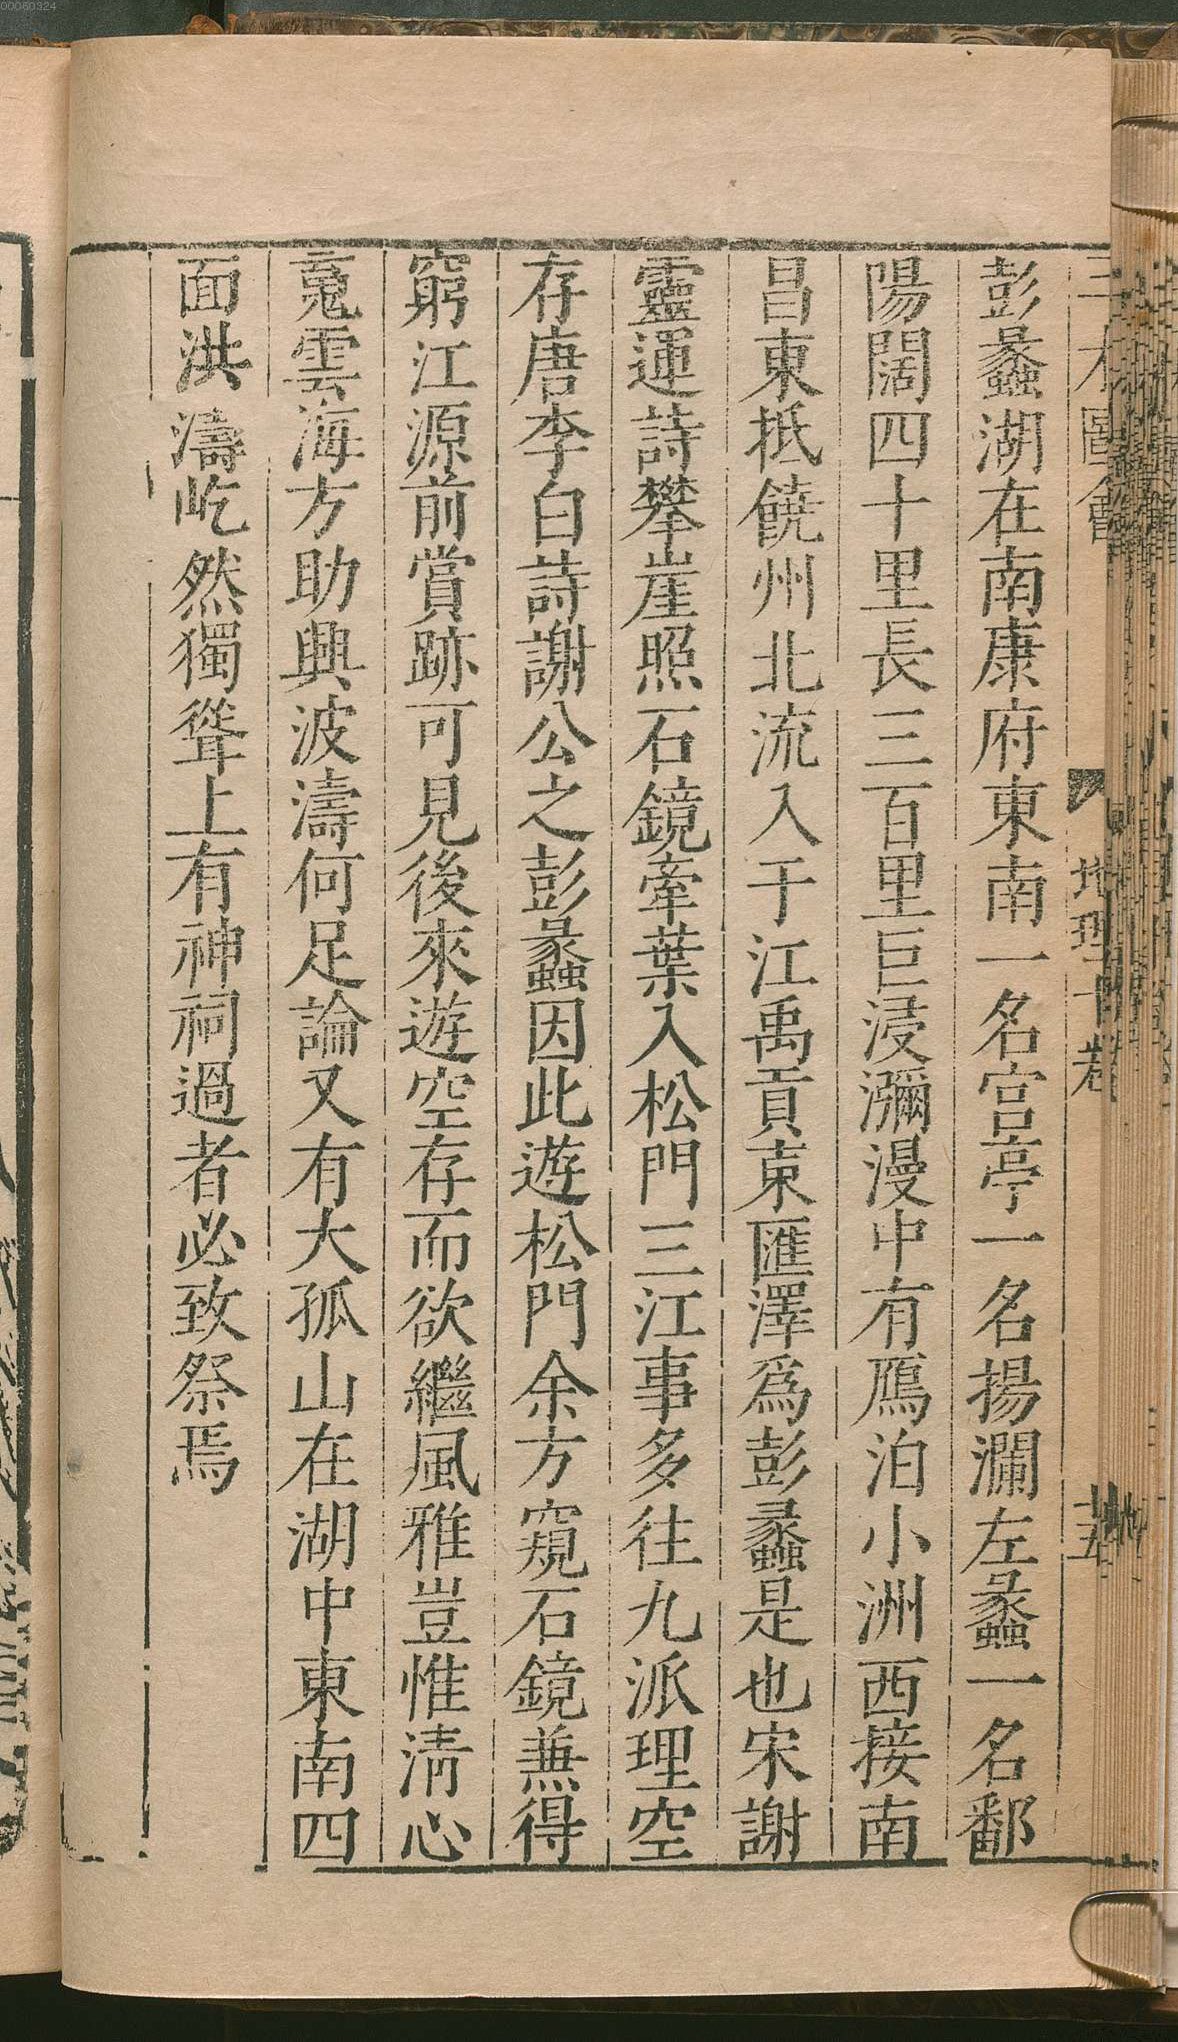 00060324
彭蠡湖在南康府東南一名宫亭一名揚瀾左蠡一名鄱
陽闊四十里長三百里巨浸瀰漫中有鴈泊小洲西接南
昌東抵饒州北流入于江禹貢東匯澤爲彭蠡是也宋謝
靈運詩攀崖照石鏡牽葉入松門三江事多往九派理空
存唐李白詩謝公之彭蠡因此遊松門余方窺石鏡兼得
窮江源前賞跡可見後來遊空存而欲繼風雅豈惟清心
䰟雲海方助興波濤何足論又有大孤山在湖中東南四
面洪濤屹然獨聳上有神祠過者必致祭焉
地理十卷